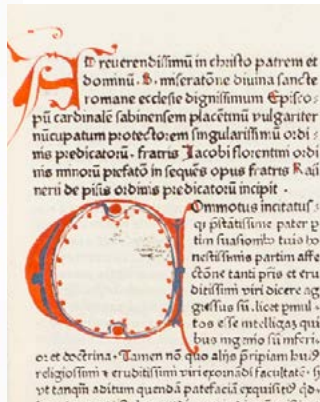 AD reuerendissimū in christo patrem et
dominū. B. miseratōne diuina sancte
romane ecclesie dignissimum Episco-
pū cardinalē sabinensem placētinū vulgariter
nūcupatum protectorem singularissimū ordi-
nis predicatorū. fratris Jacobi florentini ordi
nis minorū prefatō in sequēs opus fratris Rai
nerii de pisis ordinis predicatorū incipit.
COmmotus incitatus
qȝ
tim suasionibȝ tuis ho
nestissimis partim affe
ctōne tanti pris et eru
ditissimi viri dicere ag
gressus sū. licet
tos esse intelligaȝ qui
bus ingenio sū inferi-
or et doctrina. Tamen nō quo alijs pripiam huiꝰ
religiosissimi et eruditissimi viri exornādi facultatē. sȝ
vt tanqm aditum quendā patefaciā exquisitiꝰ